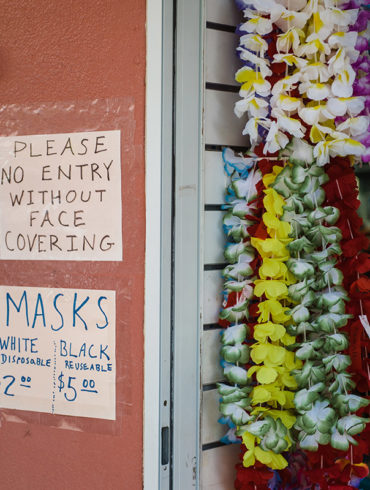 PLEASE
NO ENTRY
WITHOUT
FACE
COVERING
MASKS
WHITE BLACK
DISPOSABLE REUSEABLE
2.00 $5.00